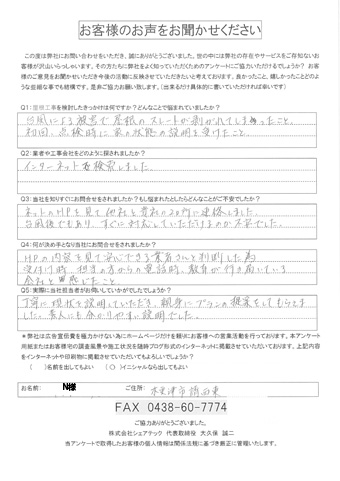 お客様のお声をお聞かせください
この度は弊社にお問い合わせをいただき、誠にありがとうございました。世の中には弊社の存在やサービスをご存知ないお
客様が沢山いらっしゃいます。その方たちに弊社をよく知っていただくためのアンケートにご協力いただけるでしょうか？ お客
様のご意見をお聞かせいただき今後の活動に反映させていただきたいと考えております。良かったこと、嬉しかったことどのよ
うな些細な事でも結構です。是非ご協力お願い致します。（出来るだけ具体的に書いていただければ幸いです）
Q1：屋根工事を検討したきっかけは何ですか？どんなことで悩まれていましたか？
台風による被害で屋根のスレートが剥がれてしまったこと。
初回、点検時に家の状態の説明を受けたこと。
Q2：業者や工事会社をどのように探されましたか？
インターネットを検索しました。
Q3：当社を知りすぐにお問合せをされましたか？もし悩まれたとしたらどんなことがご不安でしたか？
ネットのHPを見て他社と貴社の2カ所に連絡しました。
台風後でもあり、すぐに対応していただけるのか不安でした。
Q4：何が決め手となり当社にお問合せをされましたか？
HPの内容を見て安心できる業者さんと判断した為
受付け時、担当の方からの電話時、教育が行き届いている
会社と感じたこと
Q5：実際に当社担当者がお伺いしていかがでしたでしょうか？
丁寧に現状を説明していただき、親身にプランの提案をしてもらえま
した。素人にも分かりやすい説明でした。
＊弊社は広告宣伝費を極力かけない為にホームページだけを頼りにお客様への営業活動を行っております。本アンケート
用紙またはお客様宅の調査風景や施工状況を随時ブログ形式のインターネットに掲載させていただいております。上記内容
をインターネットや印刷物に掲載させていただいてもよろしいでしょうか？
（　）名前を出してもよい （○）イニシャルなら出してもよい
お名前： N様 ご住所： 木更津市請西東
FAX 0438-60-7774
ご協力ありがとうございました。
株式会社シェアテック 代表取締役 大久保 誠二
当アンケートで取得したお客様の個人情報は関係法規に基づき厳正に管理いたします。